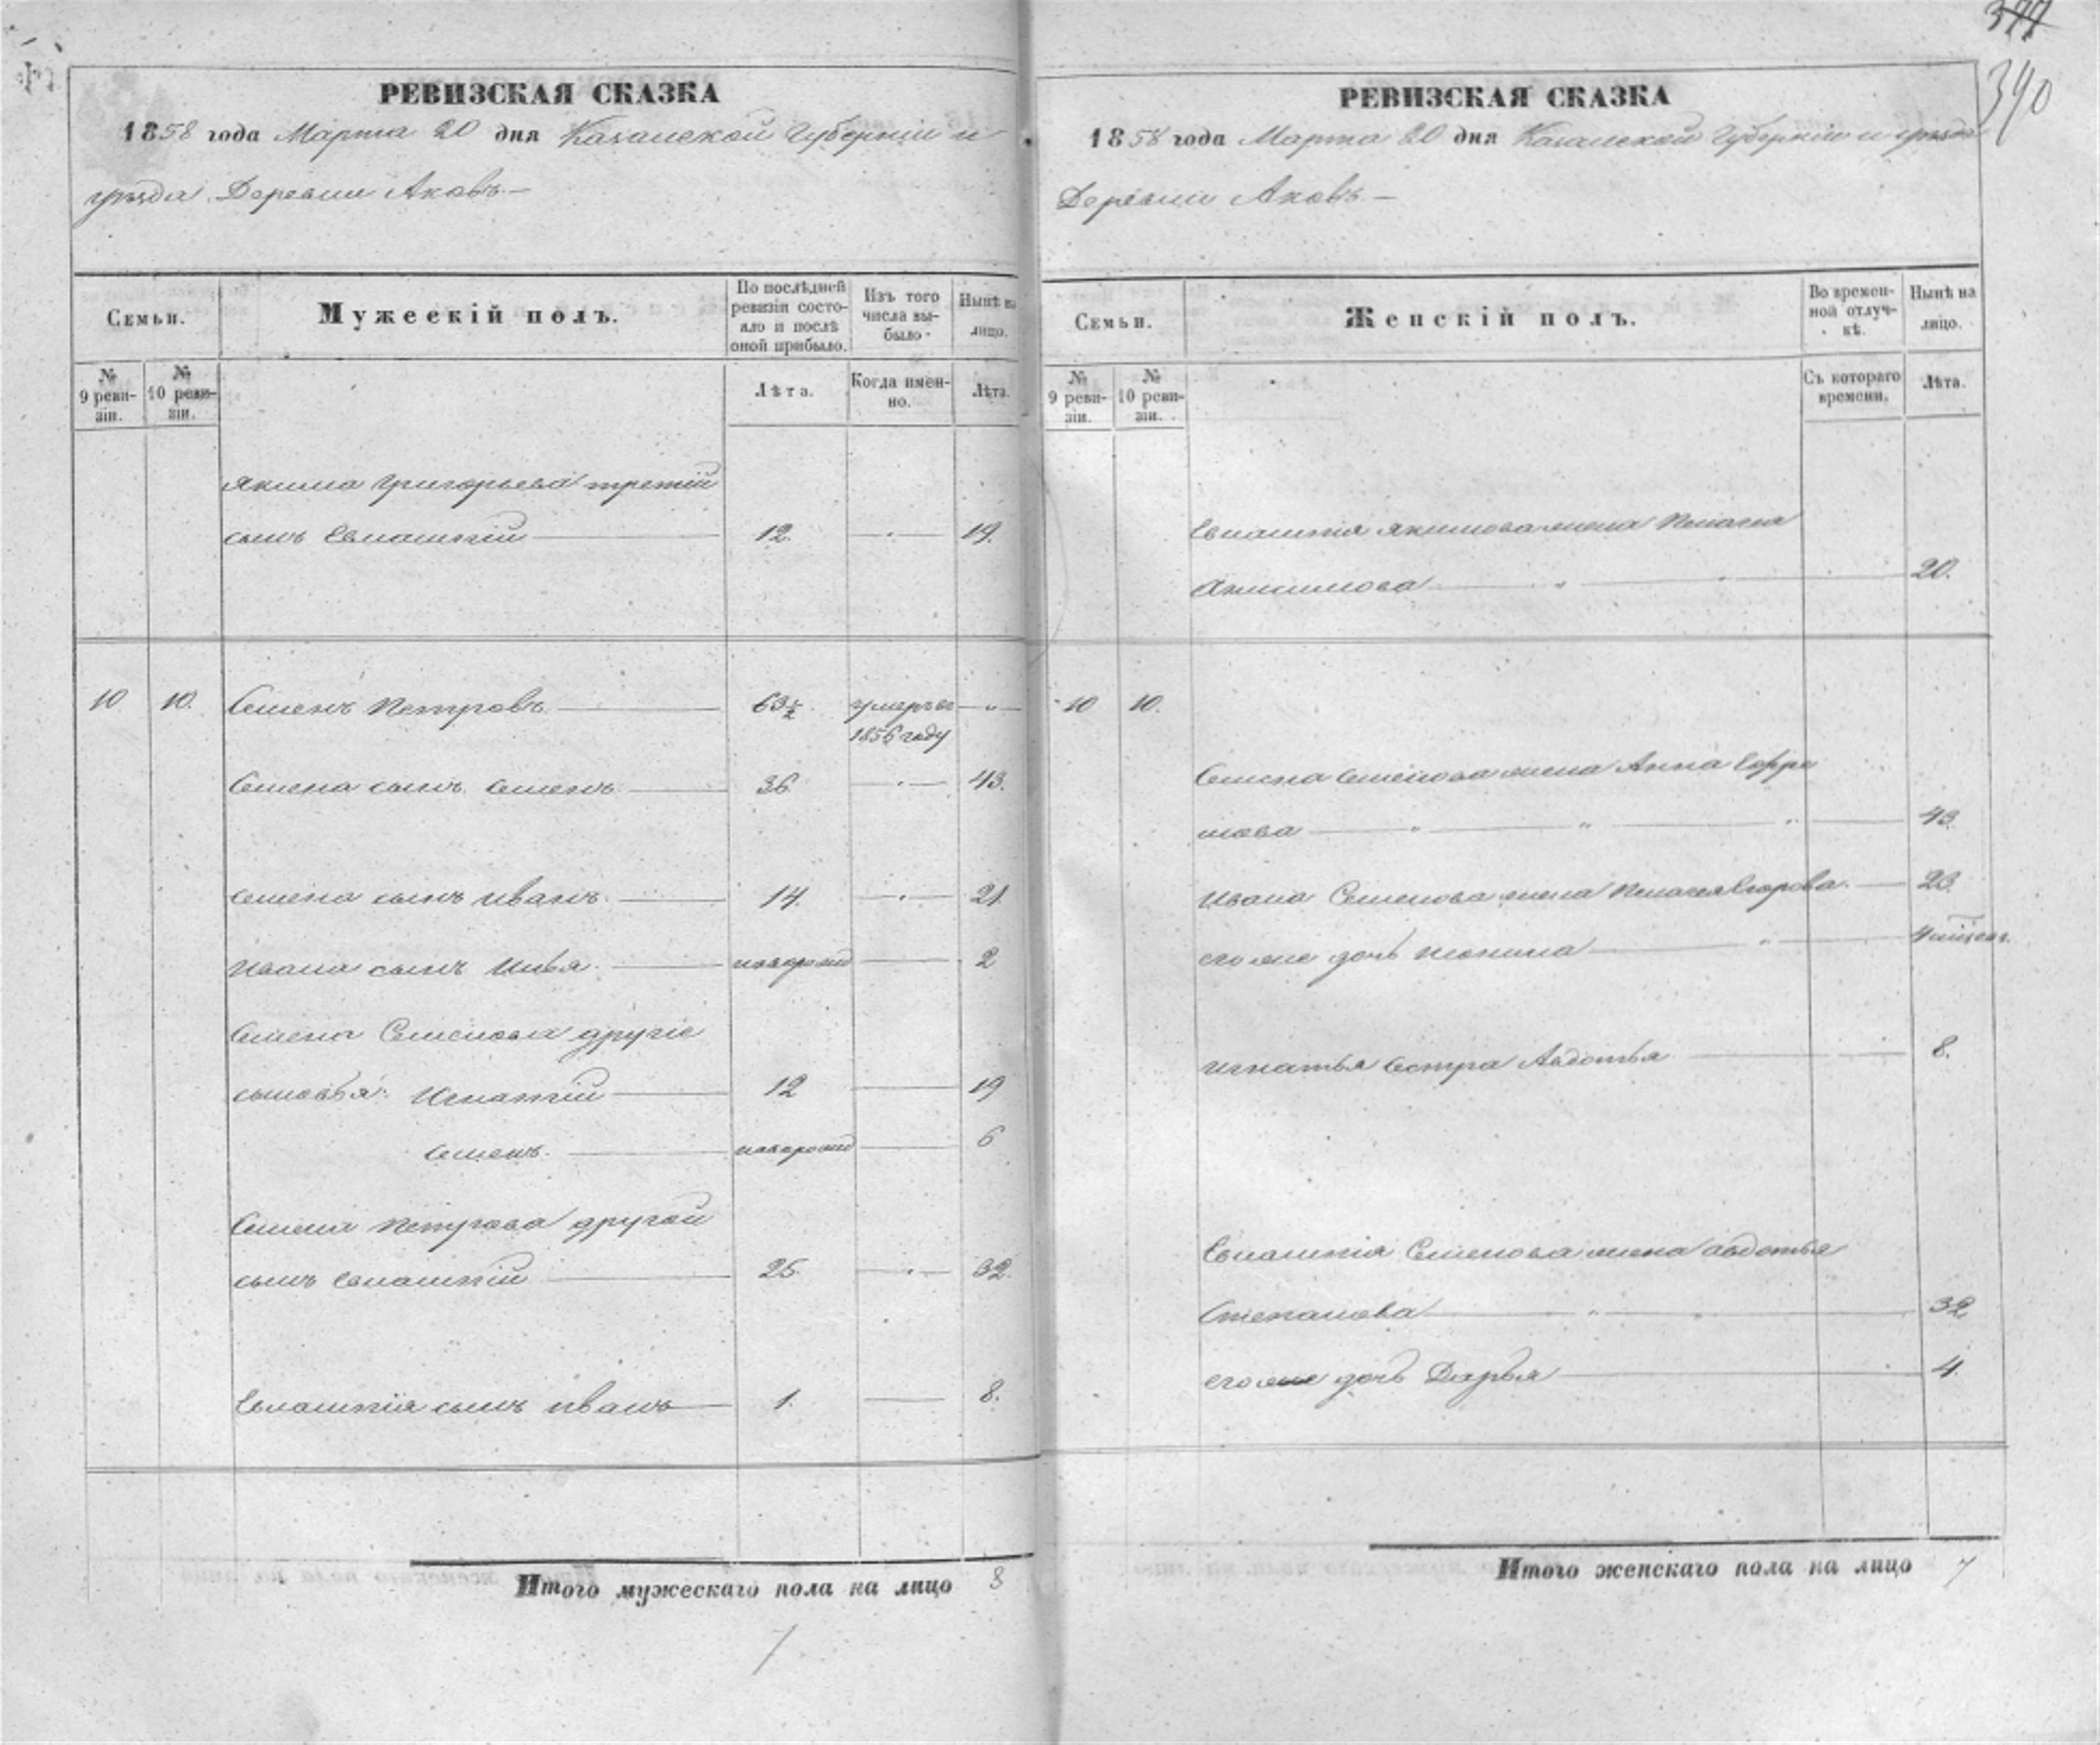 377
390
РЕВИЗСКАЯ СКАЗКА
1858 года Марта 20 дня Казанской Губерніи и
уѣзда Деревни Аковъ.—
Семьи.
Мужескій полъ.
По послѣдней ревизіи состояло и послѣ оной прибыло.
Изъ того числа выбыло.
Нынѣ на лицо.
№ 9 ревизіи.
№ 10 ревизіи.
Лѣта.
Когда именно.
Лѣта.
Якима Григорьева третій
сынъ Евлампій 12. 19.
10 10. Семенъ Петровъ 63½ умеръ въ 1856 году
Семена сынъ Семенъ 36 43.
Семена сынъ Иванъ 14. 21
Ивана сынъ Илья новорожд 2
Семена Семенова другіе
сыновья: Игнатій 12 19
Семенъ. новорожд 6
Семена Петрова другой
сынъ Евлампій 25. 32.
Евлампія сынъ Иванъ 1. 8.
Итого мужескаго пола на лицо 8
7
РЕВИЗСКАЯ СКАЗКА
1858 года Марта 20 дня Казанской Губерніи и уѣзда
Деревни Аковъ.—
Семьи.
Женскій полъ.
Во временной отлучкѣ.
Нынѣ на лицо.
№ 9 ревизіи.
№ 10 ревизіи.
Съ котораго времени.
Лѣта.
Евлампія Якимова жена Пелагея
Анисимова 20.
10 10.
Семена Семенова жена Анна Ефре
мова 43
Ивана Семенова жена Пелагея Егорова. 23
его же дочь 4 мѣсяц.
Игнатья сестра Авдотья 8.
Евлампія Семенова жена Авдотья
Степанова 32
его же дочь Дарья 4.
Итого женскаго пола на лицо 7